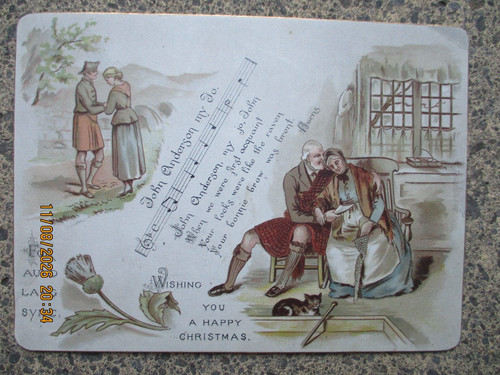 John Anderson my Jo.
John Anderson, my jo, John
When we were first acquaint
Your locks were like the raven
Your bonnie brow was brent
Burns
FOR
AULD
LANG
SYNE.
WISHING
YOU
A HAPPY
CHRISTMAS.
11/08/2025 20:34